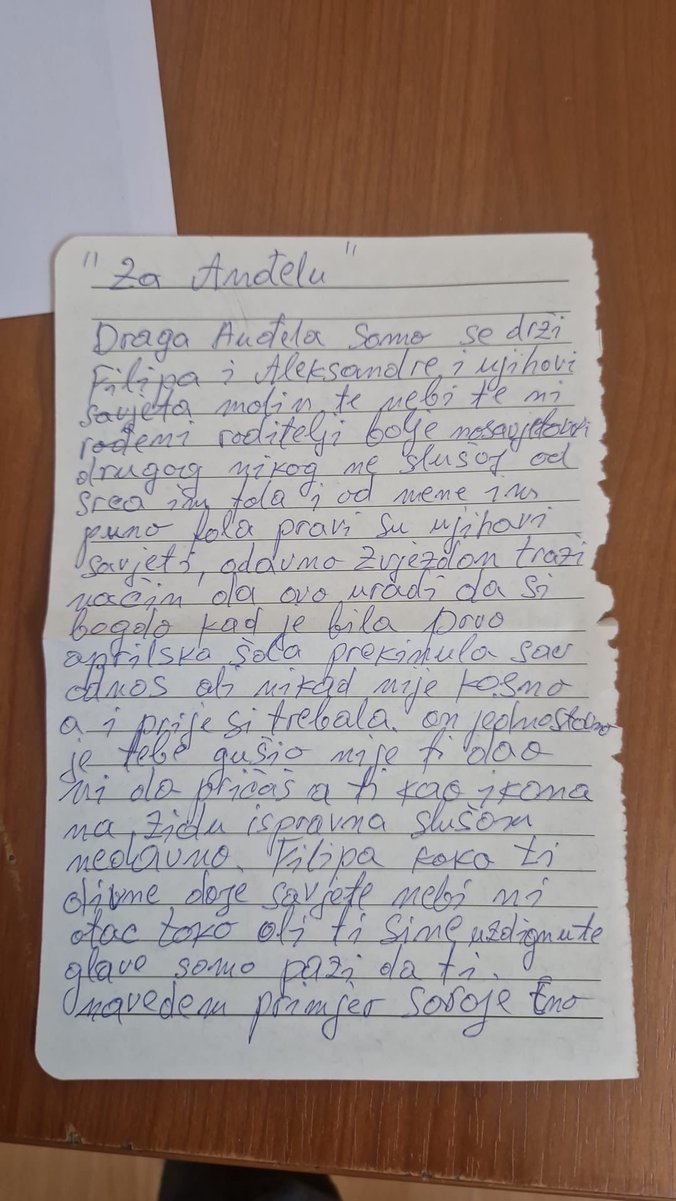 " Za Anđelu "
Draga Anđela samo se drži
Filipa i Aleksandre i njihovi
savjeta molin te nebi te ni
rođeni roditelji bolje nosavjetovi
drugog nikog ne slušaj od
srca im fola i od mene im
puno fola pravi su njihovi
savjeti, odavno zvjezdan traži
način da ovo uradi da si
bogdo kad je bila prvo
aprilska šala prekinula sav
odnos ali nikad nije kasno
a i prije si trebala. on jednostavno
je tebe gušio nije ti dao
ni da pričaš a ti kao ikona
na zidu ispravna slušam
nedavno. Filipa kako ti
divne daje savjete nebi ni
otac tako ali ti sine uzdignute
glave samo pazi da ti.
navedem primjer